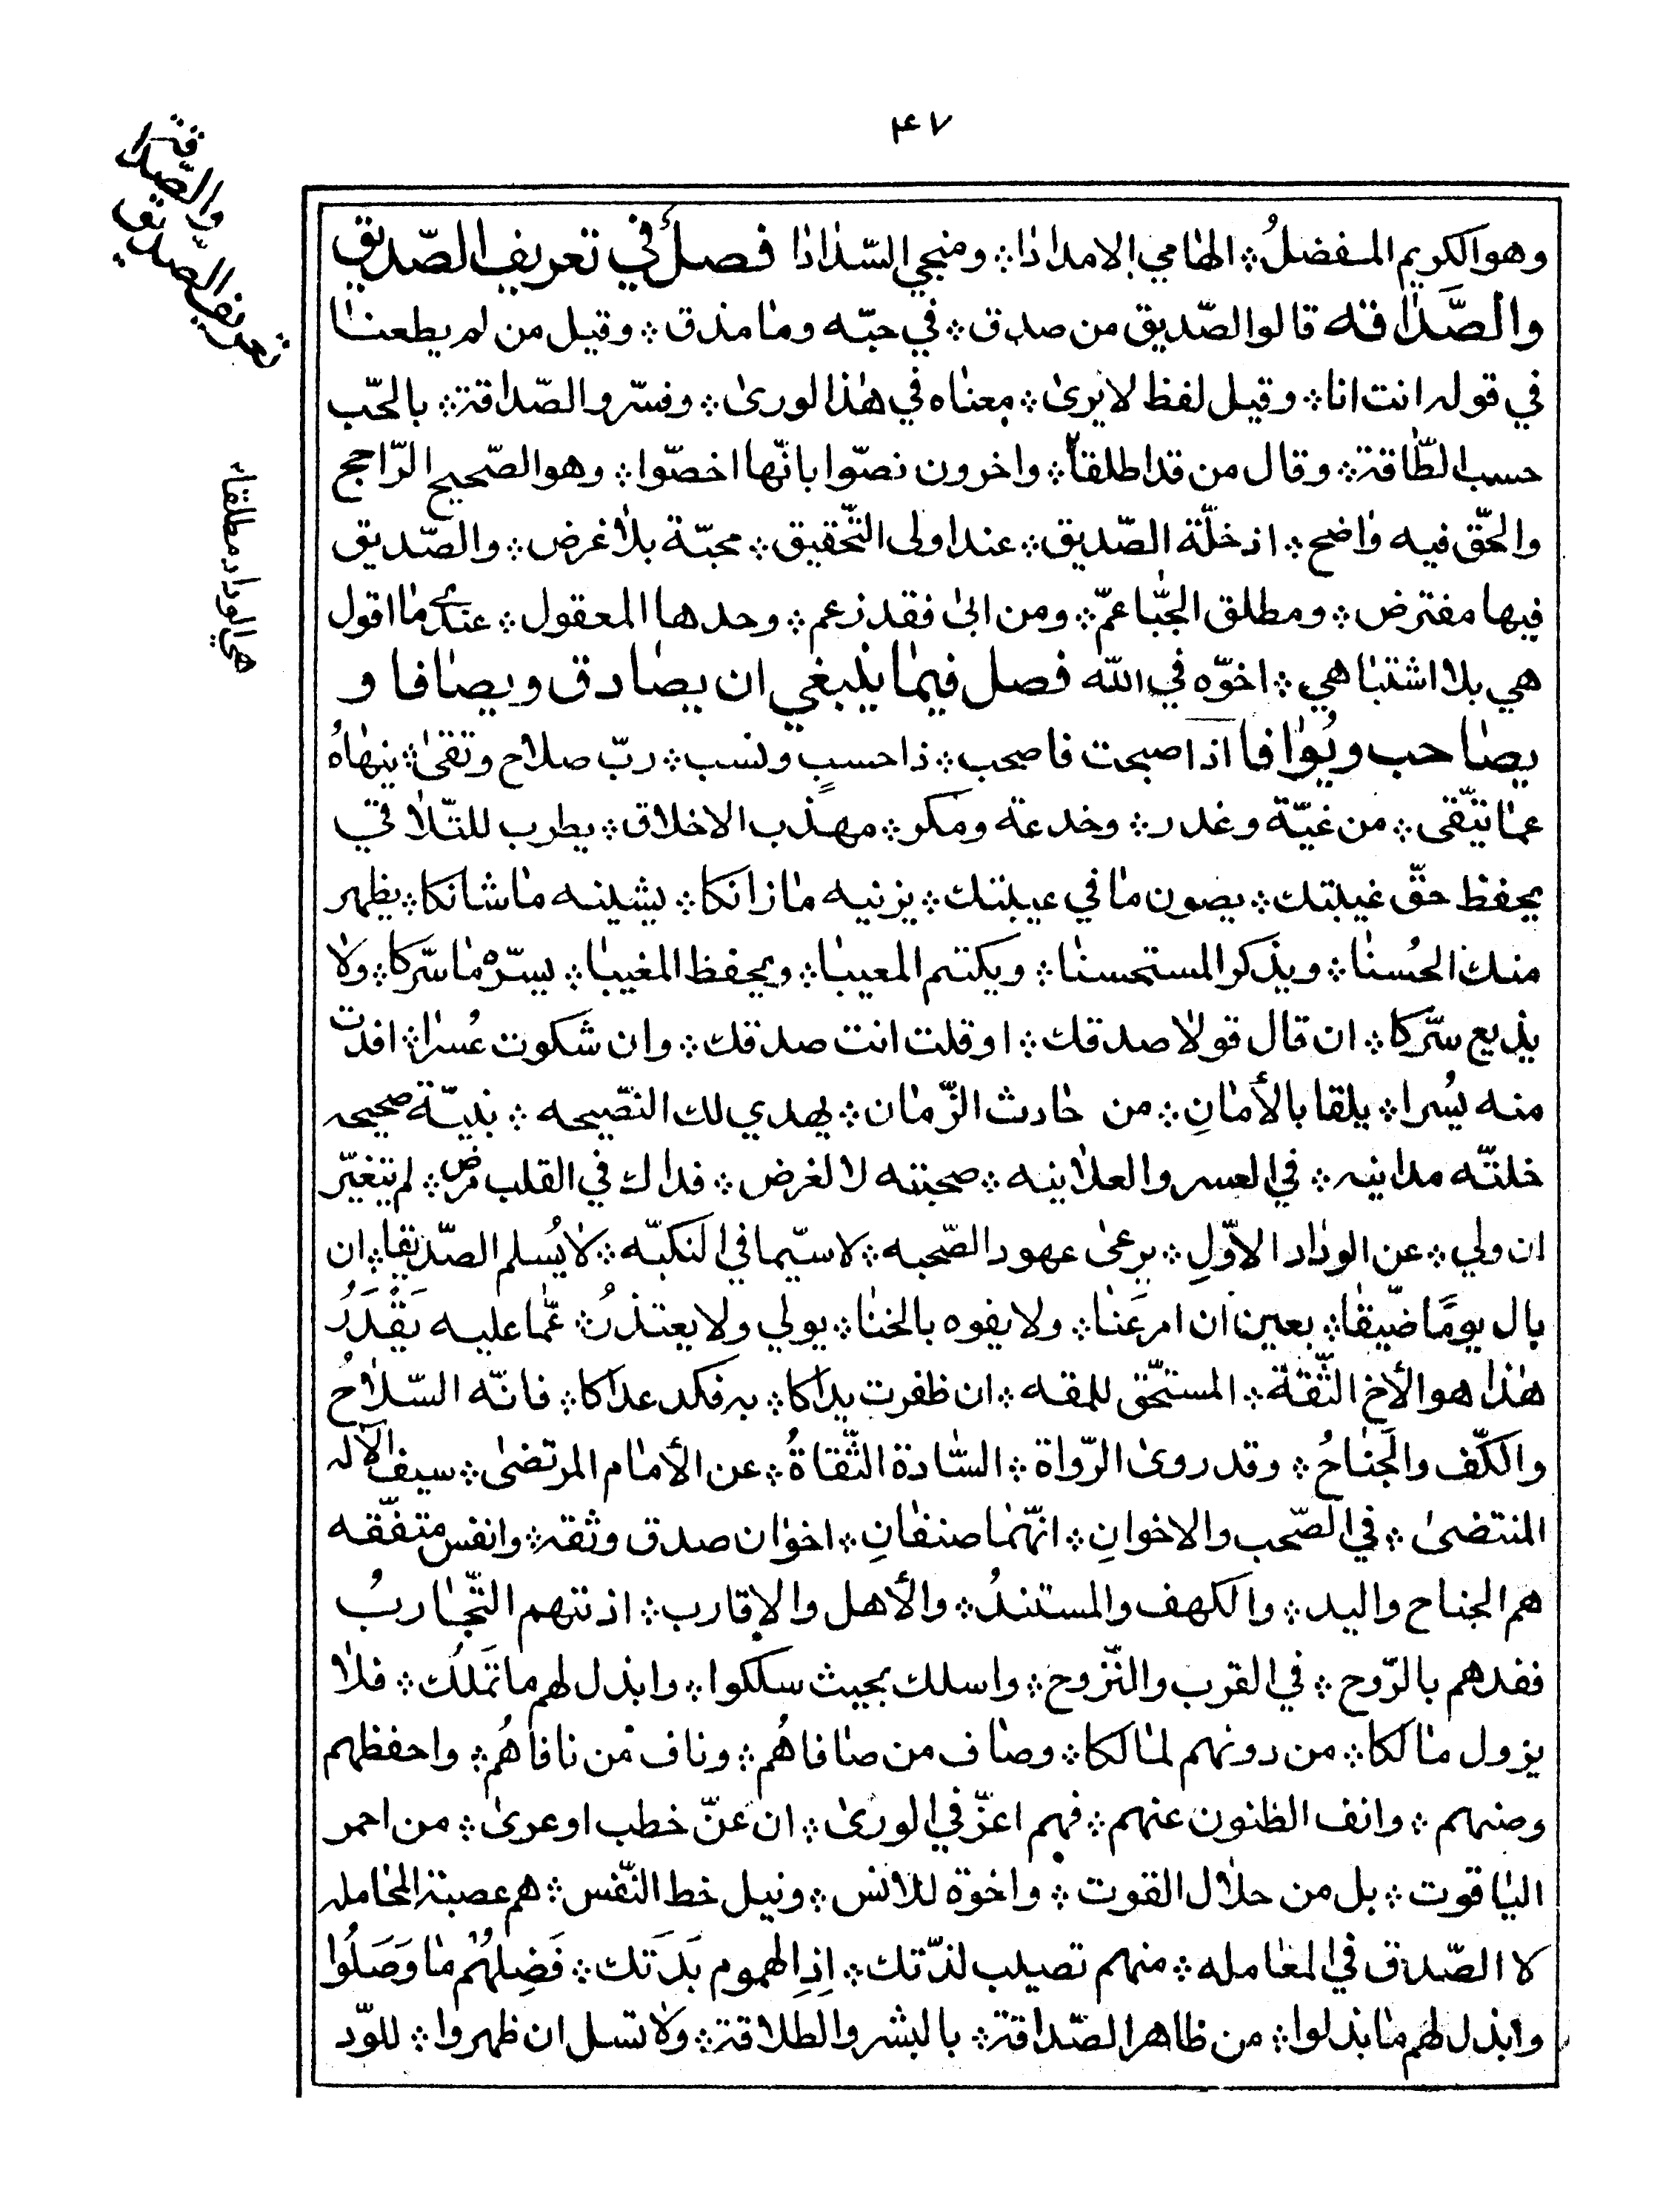 ٤٧
تعريف الصديق
والصداقة
هي الوداد مطلقاء
وهو الكريم المفضلُ ⁘ الهامي الامدادا ⁘ ومنجي السّدادا فصلٌ في تعريف الصّديق
والصَّداقه قالوا الصّديق من صدق ⁘ في حبّه وما مذق ⁘ وقيل من لم يطعنا
في قوله انت انا ⁘ وقيل لفظ لا يرى ⁘ معناه في هذا لورى ⁘ وفسّروا الصّداقة ⁘ بالحّب
حسب الطّاقة ⁘ وقال من قد اطلقاً ⁘ واخرون نصّوا بانّها اخصّوا ⁘ وهو الصّحيح الرّاجح
والحقّ فيه واضح ⁘ اذ خلّة الصّديق ⁘ عند اولى التّحقيق ⁘ محبّة بلا غرض ⁘ والصّديق
فيها مفترض ⁘ ومطلق الحبّا عمّ ⁘ ومن ابى فقد زعم ⁘ وحدها المعقول ⁘ عندي ما اقول
هي بلا اشتباهي ⁘ اخوّه في الله فصل فيما ينبغي ان يصادق ويصافا و
يصاحب ويُوافا اذا صبحت فاصحب ⁘ ذا حسبٍ ونسب ⁘ ربّ صلاح وتقى ⁘ ينهاهُ
عما تتّقى ⁘ من غيّة وغدر ⁘ وخدعة ومكر ⁘ مهذب الاخلاق ⁘ يطرب للتّلاقي
يحفظ حقّ غيبتك ⁘ يصون ما في عيبتك ⁘ يزنيه ما زانكا ⁘ يشينه ما شانكا ⁘ يظهر
منك الحُسنا ⁘ ويذكر المستحسنا ⁘ ويكتم المعيبا ⁘ ويحفظ المغيبا ⁘ يسرّه ما سّركا ⁘ ولا
يذيع سّركا ⁘ ان قال قولا صدقك ⁘ او قلت انت صدقك ⁘ وان شكوت عُسرا ⁘ افدت
منه يُسرا ⁘ يلقا بالأمانِ ⁘ من حادث الزّمان ⁘ يهدي لك النصّيحه ⁘ بنيّة صحيحه
خلتّه مدانيه ⁘ في العسر والعلانيه ⁘ صحبته لا لغرض ⁘ فداك في القلب مرض ⁘ لم يتغيّر
ان ولي ⁘ عن الوداد الاوّلِ ⁘ يرعى عهود الصّحبه ⁘ لا سيّما في النكبّه ⁘ لا يُسلم الصّديقا ⁘ ان
بال يومًا ضّيقا ⁘ بعين ان امر عنا ⁘ ولا يفوه بالخنا ⁘ يولي ولا يعتذرُ ⁘ عمّا عليه يَقْدَرُ
هذا هو الأخ الثّقة ⁘ المستحّق للمقه ⁘ ان ظفرت يداكا ⁘ به فكد عداكا ⁘ فانّه السّلاحُ
والكّف والجَناحُ ⁘ وقد روى الرّواة ⁘ السّادة الثّقاةُ ⁘ عن الأمام المرتضى ⁘ سيف الآله
المنتضى ⁘ في الصّحب والاخوانِ ⁘ انّهما صنفانِ ⁘ اخوان صدق وثقة ⁘ وانفس متفّقه
هم الجناح واليد ⁘ والكهف والمستندُ ⁘ والأهل والاقارب ⁘ اذ تتهم التّجاربُ
ففدهم بالرّوح ⁘ في القرب والنّزوح ⁘ واسلك بحيث سلكوا ⁘ وابذل لهم ما تملك ⁘ فلا
يزول مالكا ⁘ من دونهم لمالكا ⁘ وصاف من صافاهُم ⁘ وناف من نافاهُم ⁘ واحفظهم
وصنهم ⁘ وانف الظنون عنهم ⁘ فهم اعزّ في الورى ⁘ ان عنّ خطب او عرى ⁘ من احمر
الياقوت ⁘ بل من حلال القوت ⁘ واخوة للانس ⁘ ونيل خط النّفس ⁘ هم عصبة المجامله
لا الصّدق في المعامله ⁘ منهم تصيب لذّتك ⁘ اِذِ الهموم بَدَتك ⁘ فَضِلهُم ما وَصَلُوا
وابذل لهم ما بذلوا ⁘ من ظاهر الصّداقة ⁘ بالبشر والطلاقة ⁘ ولا تسل ان ظهروا ⁘ للوّد